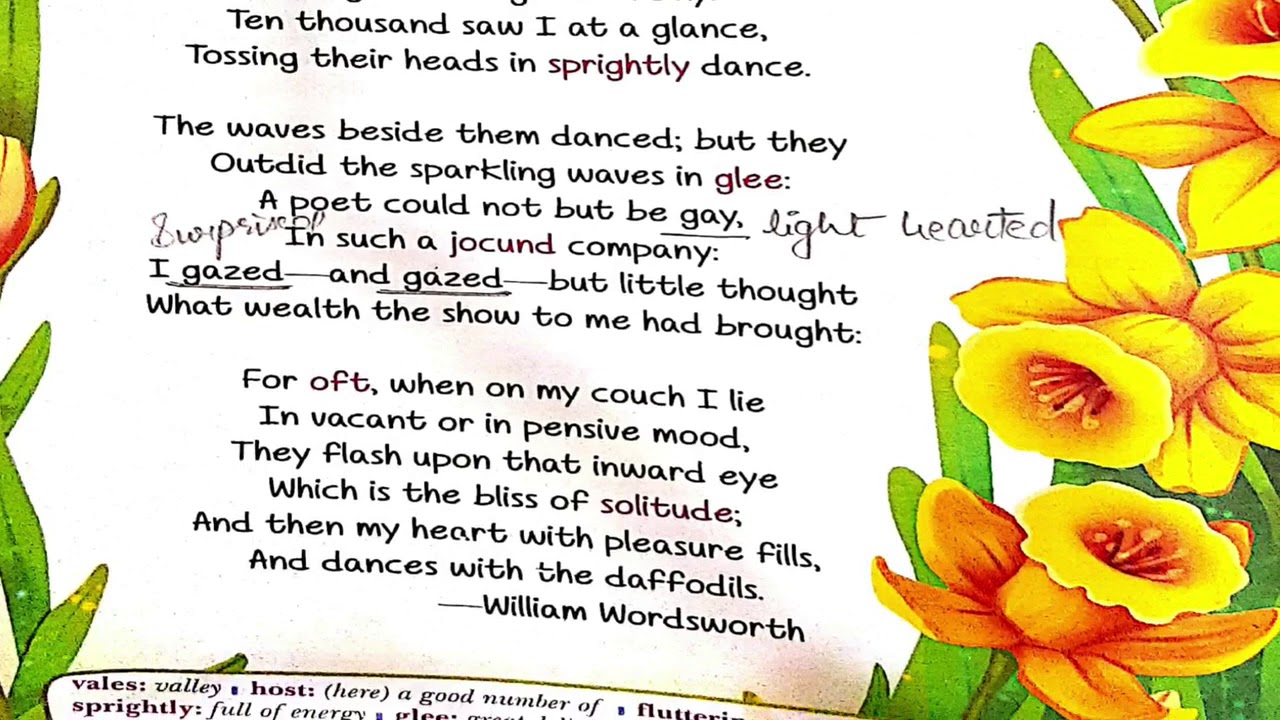 Ten thousand saw I at a glance,
Tossing their heads in sprightly dance.
The waves beside them danced; but they
Outdid the sparkling waves in glee:
A poet could not but be gay, light hearted
In such a jocund company:
I gazed—and gazed—but little thought
What wealth the show to me had brought:
For oft, when on my couch I lie
In vacant or in pensive mood,
They flash upon that inward eye
Which is the bliss of solitude;
And then my heart with pleasure fills,
And dances with the daffodils.
—William Wordsworth
vales: valley host: (here) a good number of
sprightly: full of energy glee: